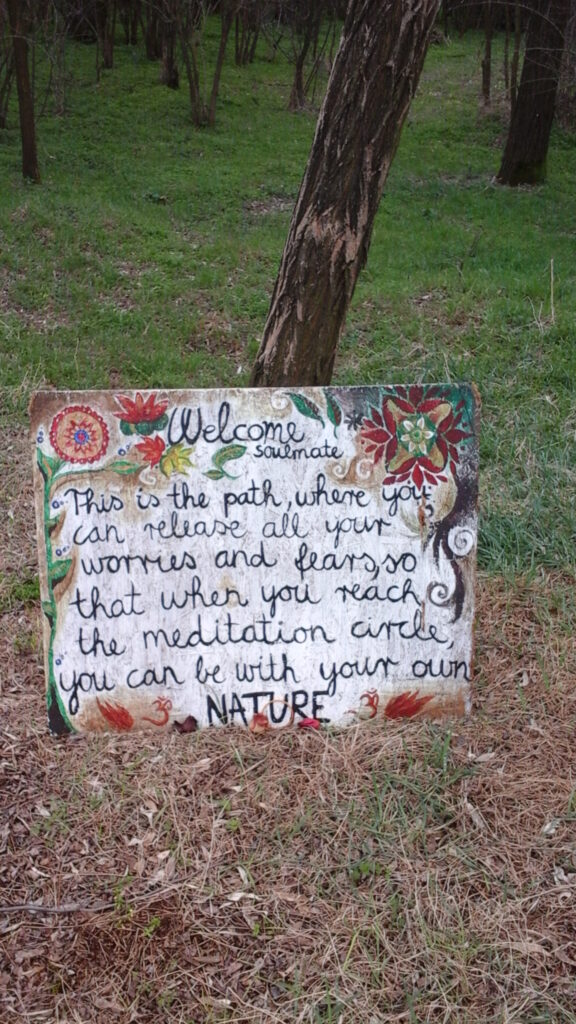 Welcome
soulmate
This is the path, where you
can release all your
worries and fears, so
that when you reach
the meditation circle,
you can be with your own
NATURE